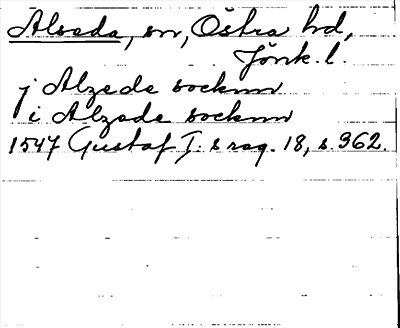 Alseda, sn, Östra hd,
Jönk. l.
j Alzede socknn
i Alzede socknn
1547 Gustaf I:s reg. 18, s. 362.